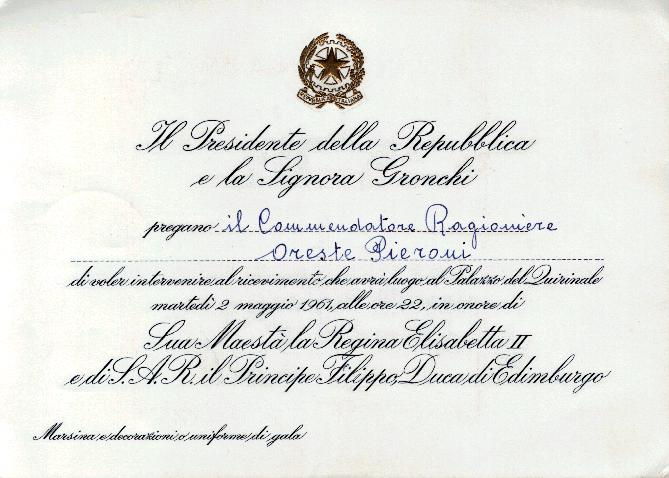 Il Presidente della Repubblica
e la Signora Gronchi
pregano il Commendatore Ragioniere
Oreste Pieroni
di voler intervenire al ricevimento che avrà luogo al Palazzo del Quirinale
martedì 2 maggio 1961, alle ore 22, in onore di
Sua Maestà la Regina Elisabetta II
e di S.A.R. il Principe Filippo, Duca di Edimburgo
Marsina e decorazioni o uniforme di gala